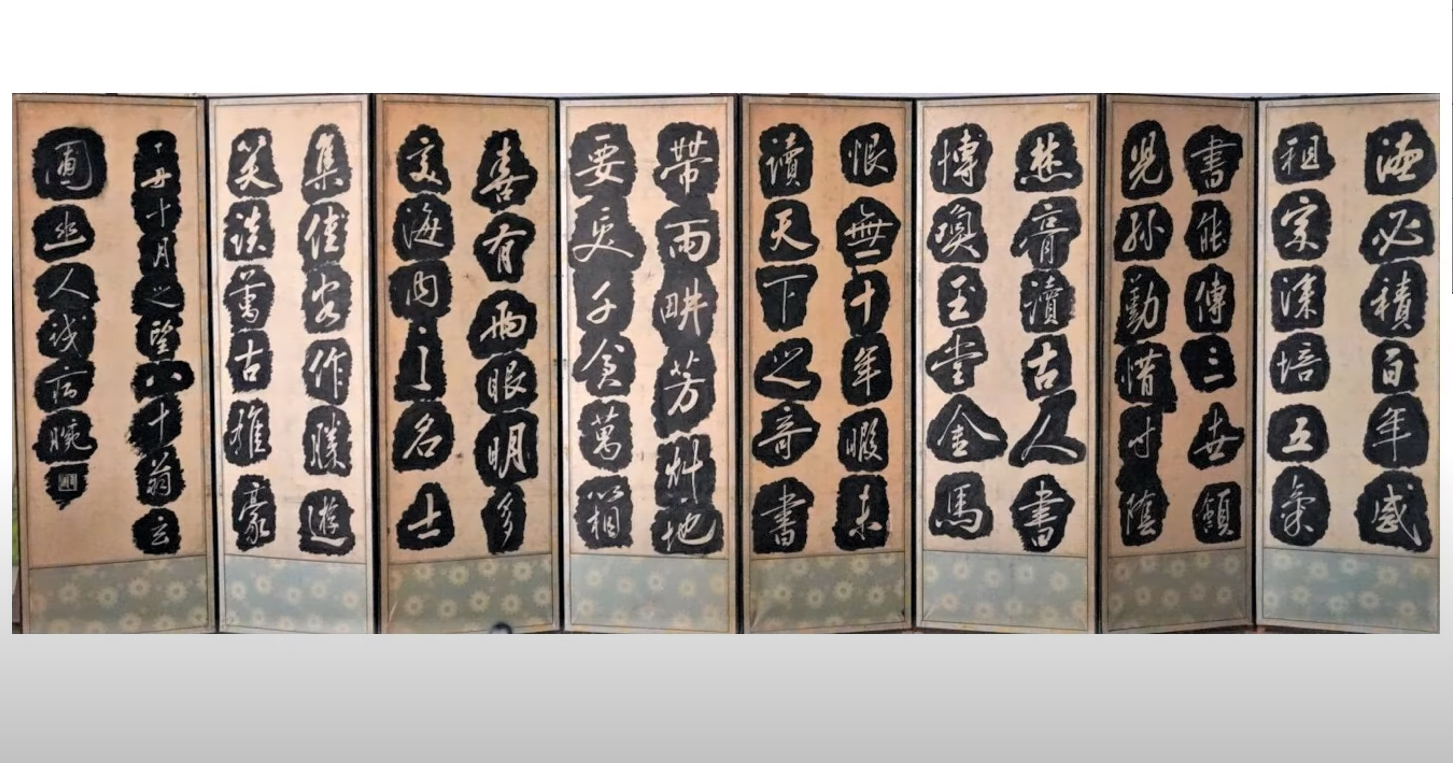 德必積百年盛
祖宗深培五氣
書能傳三世
兒孫勤惜寸陰
焚膏讀古人書
博換玉堂金馬
恨無十年暇未
讀天下之奇書
帶雨畊芳艸地
要受千倉萬箱
喜有兩眼明多
交海內之名士
集佳客作勝遊
笑談萬古推豪
丁丑十月之望八十翁玄
圃幽人試病腕